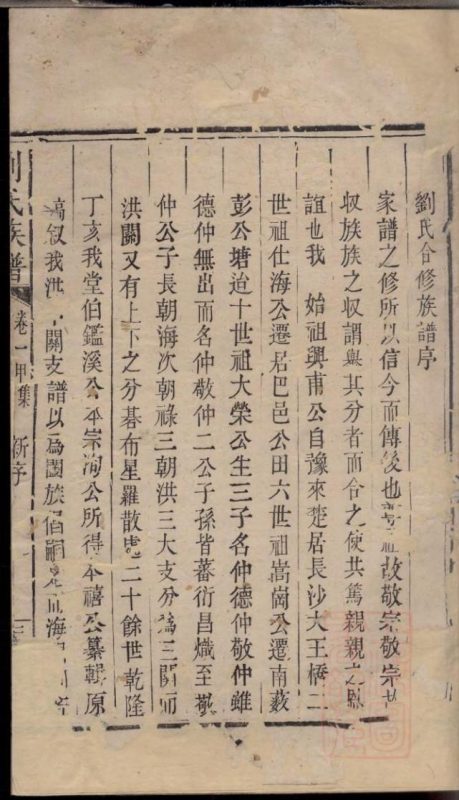 劉氏合修族譜序
家譜之修所以信今而傳後也尊祖故敬宗敬宗故
収族族之収謂與其分者而合之使共篤親親之恩
誼也我 始祖興甫公自豫來楚居長沙大王橋二
世祖仕海公遷居巴邑公田六世祖嵩崗公遷南薮
彭公塘迨十世祖大榮公生三子名仲德仲敬仲雖
德仲無出而名仲敬仲二公子孫皆蕃衍昌熾至敬
仲公子長朝海次朝祿三朝洪三大支分為三關而
洪關又有上下之分碁布星羅散處二十餘世乾隆
丁亥我堂伯鑑溪公本宗洵公所得本禧公纂輯原
稿叙我洪 關支譜以為闔族伯嗣 海
劉氏族譜 卷一甲集 新序